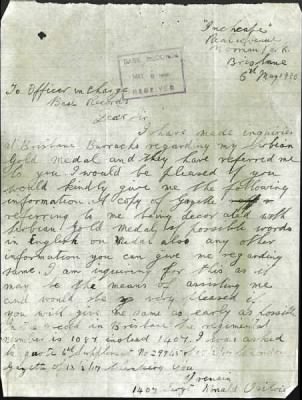 "Inchcape"
Norman Park
Brisbane
6th May 1920
BASE RECORDS
MAY
RECEIVED
To Officer in Charge
Base Records
Dear Sir
I have made enquiries
at Brisbane Barracks regarding my Serbian
Gold Medal and they have referred me
to you. I would be pleased if you
would kindly give me the following
information. A copy of Gazette
referring to me being decorated with
Serbian Gold Medal, if possible words
in English on Medal also any other
information you can give me regarding
same. I am inquiring for this as it
may be the means of assisting me
and would be very pleased if
you will give me same as early as possible
in Brisbane the regimental
number is 1037 instead 1407. I was asked
to quote 6th Supplement No
Gazette of Thanking You
I remain
1407 Sergt Ronald